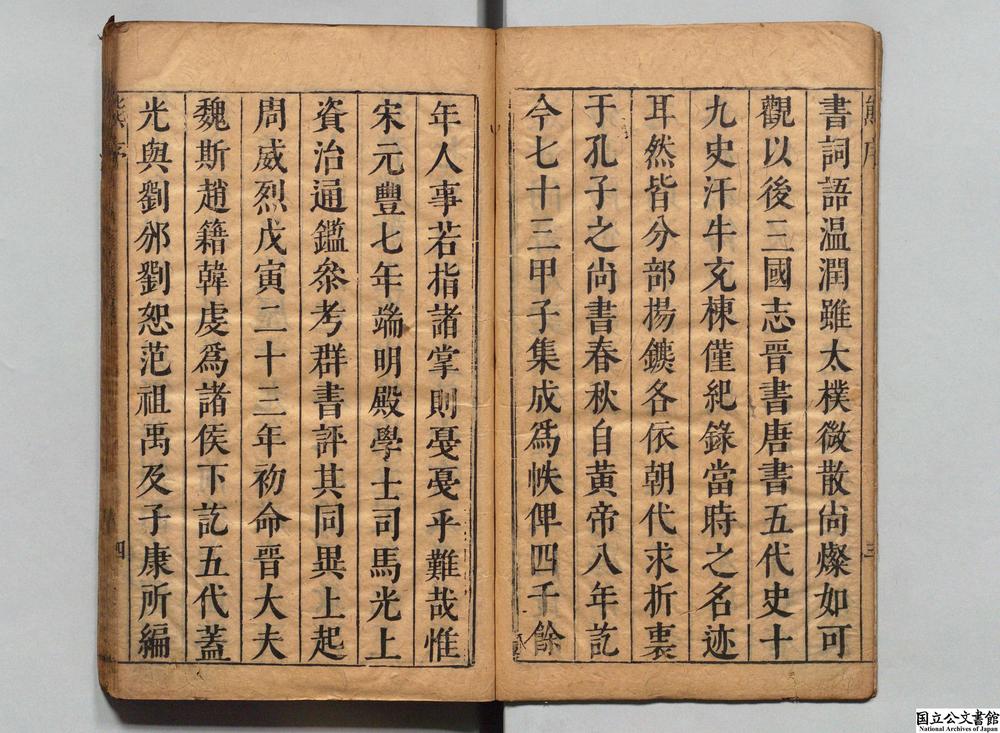 書詞語温潤雖太樸微散尙燦如可
觀以後三國志晉書唐書五代史十
九史汗牛充棟僅紀錄當時之名迹
耳然皆分部揚鑣各依朝代求折衷
于孔子之尙書春秋自黃帝八年訖
今七十三甲子集成爲帙俾四千餘
年人事若指諸掌則戞戞乎難哉惟
宋元豐七年端明殿學士司馬光上
資治通鑑叅考群書評其同異上起
周威烈戊寅二十三年初命晉大夫
魏斯趙籍韓虔爲諸侯下訖五代蓋
光與劉邠劉恕范祖禹及子康所編
熊序
三
熊序
四
国立公文書館
National Archives of Japan